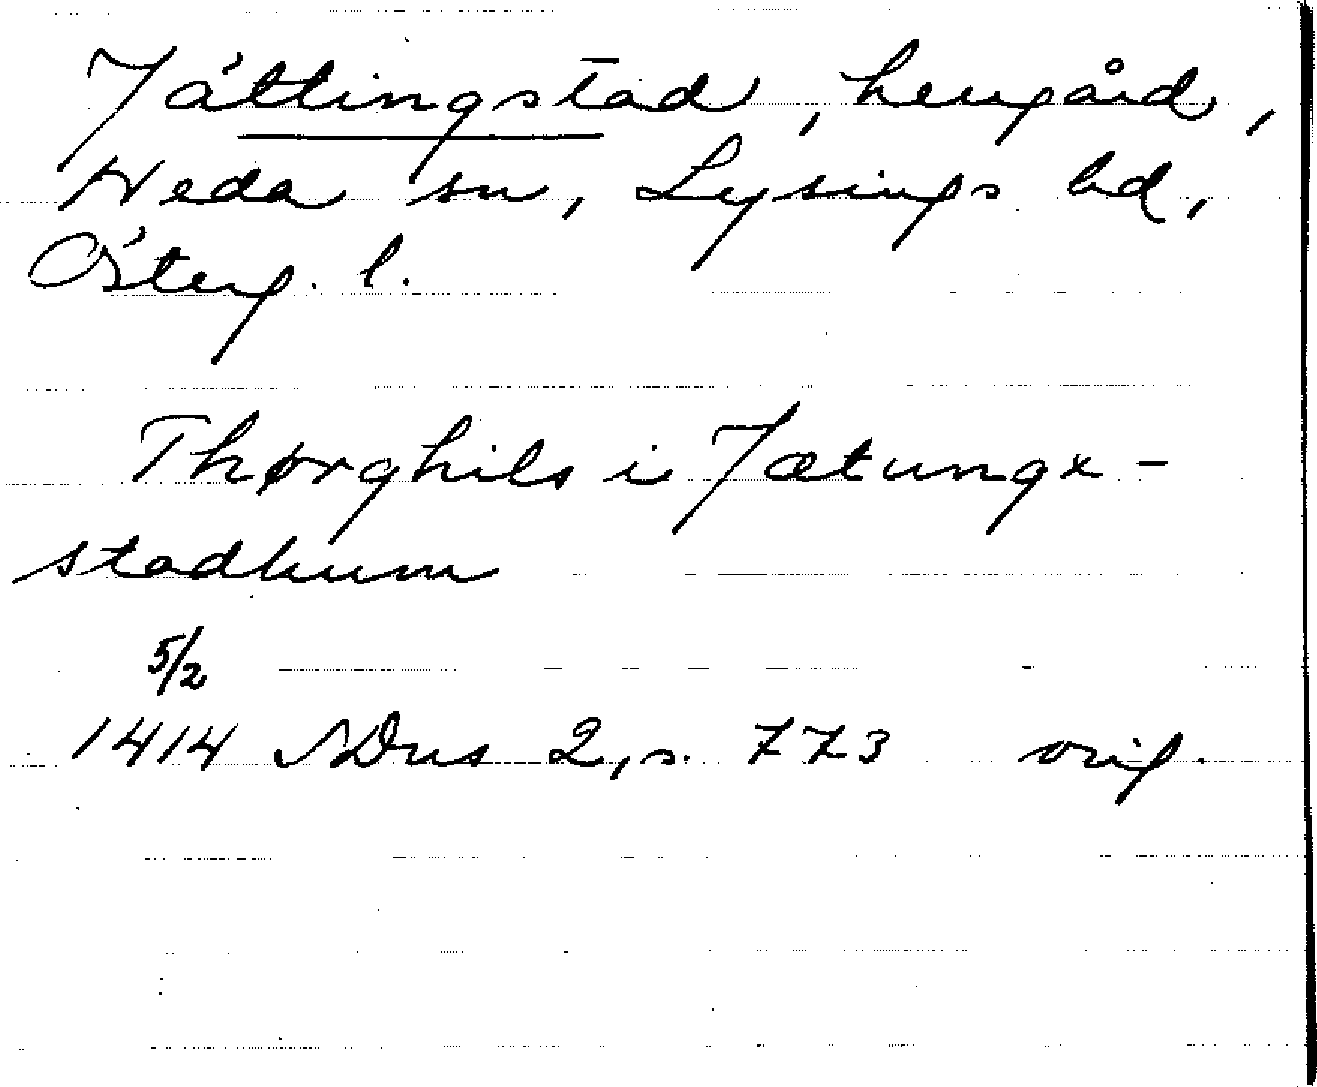 Jättingstad, herrgård,
Heda sn, Lysings hd,
Österg. l.
Thørghils i Jætungx-
stadhum
5/2
1414 SDns 2, s. 773 orig.